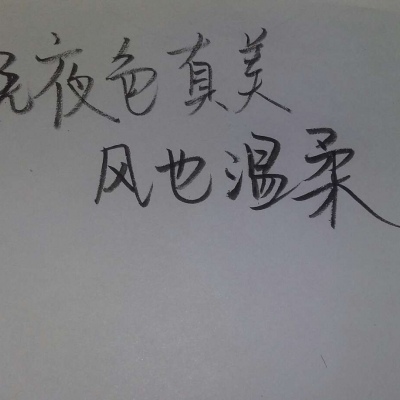 晚夜色真美
风也温柔